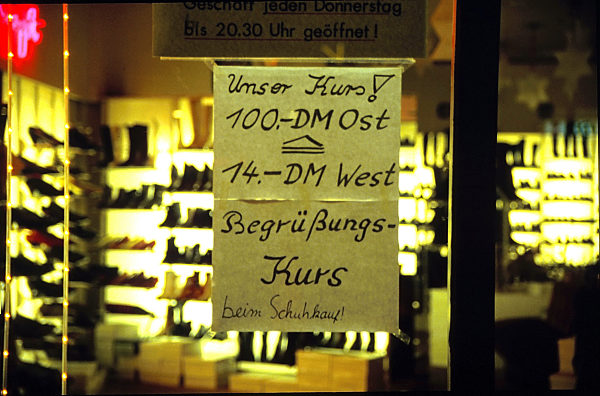 Geschäft jeden Donnerstag
bis 20.30 Uhr geöffnet!
Unser Kurs!
100.-DM Ost
≙
14.-DM West
Begrüßungs-
Kurs
beim Schuhkauf!